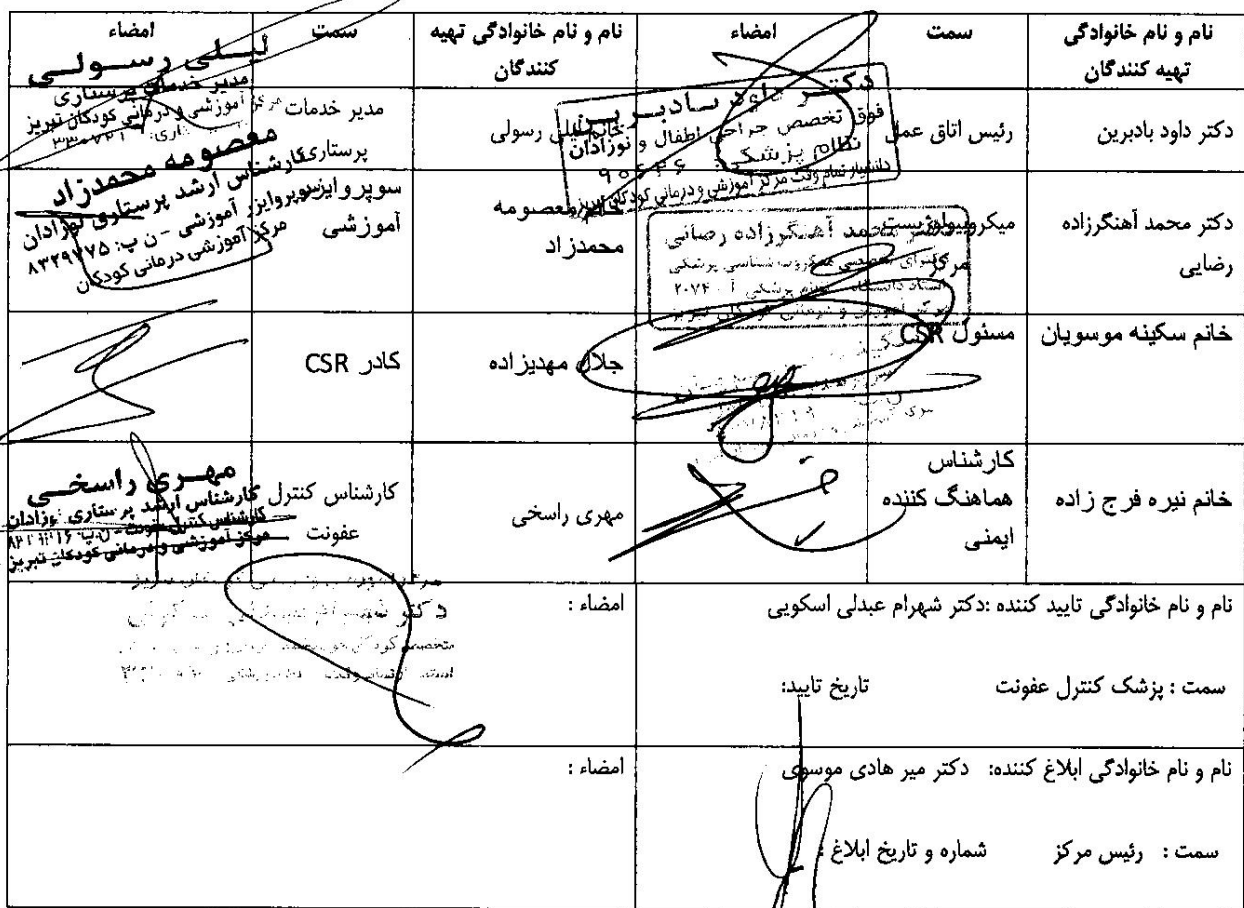 نام و نام خانوادگی تهیه کنندگان
سمت
امضاء
نام و نام خانوادگی تهیه کنندگان
سمت
امضاء
دکتر داود بادبرین
رئیس اتاق عمل
دکتر داود بادبرین
فوق تخصص جراحی اطفال و نوزادان
نظام پزشکی: ۹۰۵۴۶
دانشیار تمام وقت مرکز آموزشی و درمانی کودکان تبریز
خانم لیلی رسولی
مدیر خدمات پرستاری
لیلی رسولی
مدیر خدمات پرستاری
مرکز آموزشی و درمانی کودکان تبریز
دکتر محمد آهنگرزاده رضایی
میکروبیولوژیست مرکز
دکتر محمد آهنگرزاده رضائی
خانم معصومه محمدزاد
سوپروایزر آموزشی
معصومه محمدزاد
کارشناس ارشد پرستاری نوزادان
سوپروایزر آموزشی - ن پ: ۸۳۲۹۷۷۵
مرکز آموزشی درمانی کودکان
خانم سکینه موسویان
مسئول CSR
جلال مهدیزاده
کادر CSR
خانم نیره فرج زاده
کارشناس
هماهنگ کننده
ایمنی
مهری راسخی
کارشناس کنترل عفونت
مهری راسخی
کارشناس ارشد پرستاری نوزادان
کارشناس کنترل عفونت
مرکز آموزشی و درمانی کودکان تبریز
نام و نام خانوادگی تایید کننده :دکتر شهرام عبدلی اسکویی
سمت : پزشک کنترل عفونت تاریخ تایید:
امضاء :
نام و نام خانوادگی ابلاغ کننده: دکتر میر هادی موسوی
سمت : رئیس مرکز شماره و تاریخ ابلاغ :
امضاء :